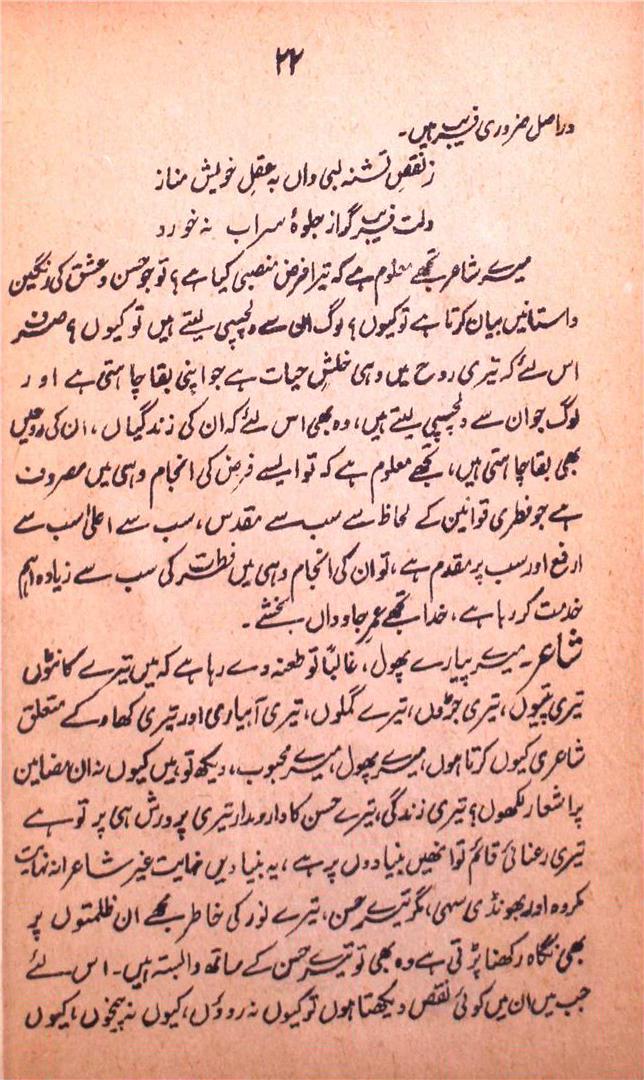 ۲۲
دراصل ضروری فریب ہیں۔
ز نقصِ تشنہ لبی داں بہ عقلِ خویش مناز
دلت فریب گر از جلوۂ سراب نہ خورد
میرے شاعر تجھے معلوم ہے کہ تیرا فرض منصبی کیا ہے؟ تو جو حسن و عشق کی رنگین
داستانیں بیان کرتا ہے تو کیوں؟ لوگ ان سے دلچسپی لیتے ہیں تو کیوں؟ صرف
اس لئے کہ تیری روح میں وہی خلشِ حیات ہے جو اپنی بقا چاہتی ہے اور
لوگ جو ان سے دلچسپی لیتے ہیں، وہ بھی اس لئے کہ ان کی زندگیاں، ان کی روحیں
بھی بقا چاہتی ہیں، تجھے معلوم ہے کہ تو ایسے فرض کی انجام دہی میں مصروف
ہے جو فطری قوانین کے لحاظ سے سب سے مقدس، سب سے اعلیٰ سب سے
ارفع اور سب پر مقدم ہے، تو ان کی انجام دہی میں فطرت کی سب سے زیادہ اہم
خدمت کر رہا ہے، خدا تجھے عمرِ جاوداں بخشے۔
شاعر۔ میرے پیارے پھول، غالباً تو طعنہ دے رہا ہے کہ میں تیرے کانٹوں
تیری پتیوں، تیری جڑوں، تیرے گملوں، تیری آبیاری اور تیری کھاد کے متعلق
شاعری کیوں کرتا ہوں، میرے پھول، میرے محبوب، دیکھ تو میں کیوں نہ ان مضامین
پر اشعار لکھوں؟ تیری زندگی، تیرے حسن کا دارومدار تیری پرورش ہی پر تو ہے
تیری رعنائی قائم تو انھیں بنیادوں پر ہے، یہ بنیادیں نہایت غیر شاعرانہ نہایت
مکروہ اور بھونڈی سہی، مگر تیرے حسن، تیرے نور کی خاطر مجھے ان ظلمتوں پر
بھی نگاہ رکھنا پڑتی ہے وہ بھی تو تیرے حسن کے ساتھ وابستہ ہیں۔ اس لئے
جب میں ان میں کوئی نقص دیکھتا ہوں تو کیوں نہ روؤں، کیوں نہ چیخوں، کیوں